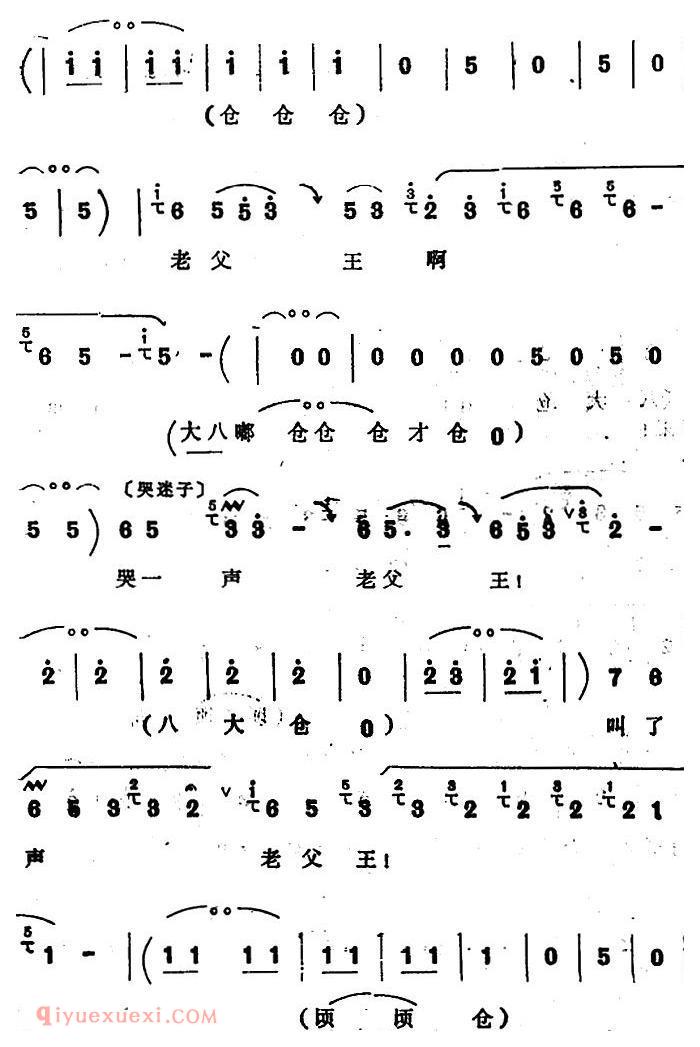 ( | i i | i i | i | i | i | 0 | 5 | 0 | 5 | 0
(仓 仓 仓)
5 | 5 ) | 6 5 5 3 5 3 2 3 6 6 6 -
老父 王 啊
6 5 - 5 - ( | 0 0 | 0 0 0 0 5 0 5 0
(大八嘟 仓仓 仓才仓 0)
5 5 ) 6 5 3 3 - 6 5. 3 6 5 3 2 -
〔哭迷子〕
哭一 声 老父 王!
2 | 2 | 2 | 2 | 2 | 0 | 2 3 | 2 i | ) 7 6
(八 大 仓 0)
叫了
6 5 3 3 2 ∨ 6 5 3 3 2 2 2 2 1
声 老父王!
1 - | ( 1 1 1 1 | 1 1 | 1 1 | 1 | 0 | 5 | 0
(顷 顷 仓)
qiyuexuexi.com